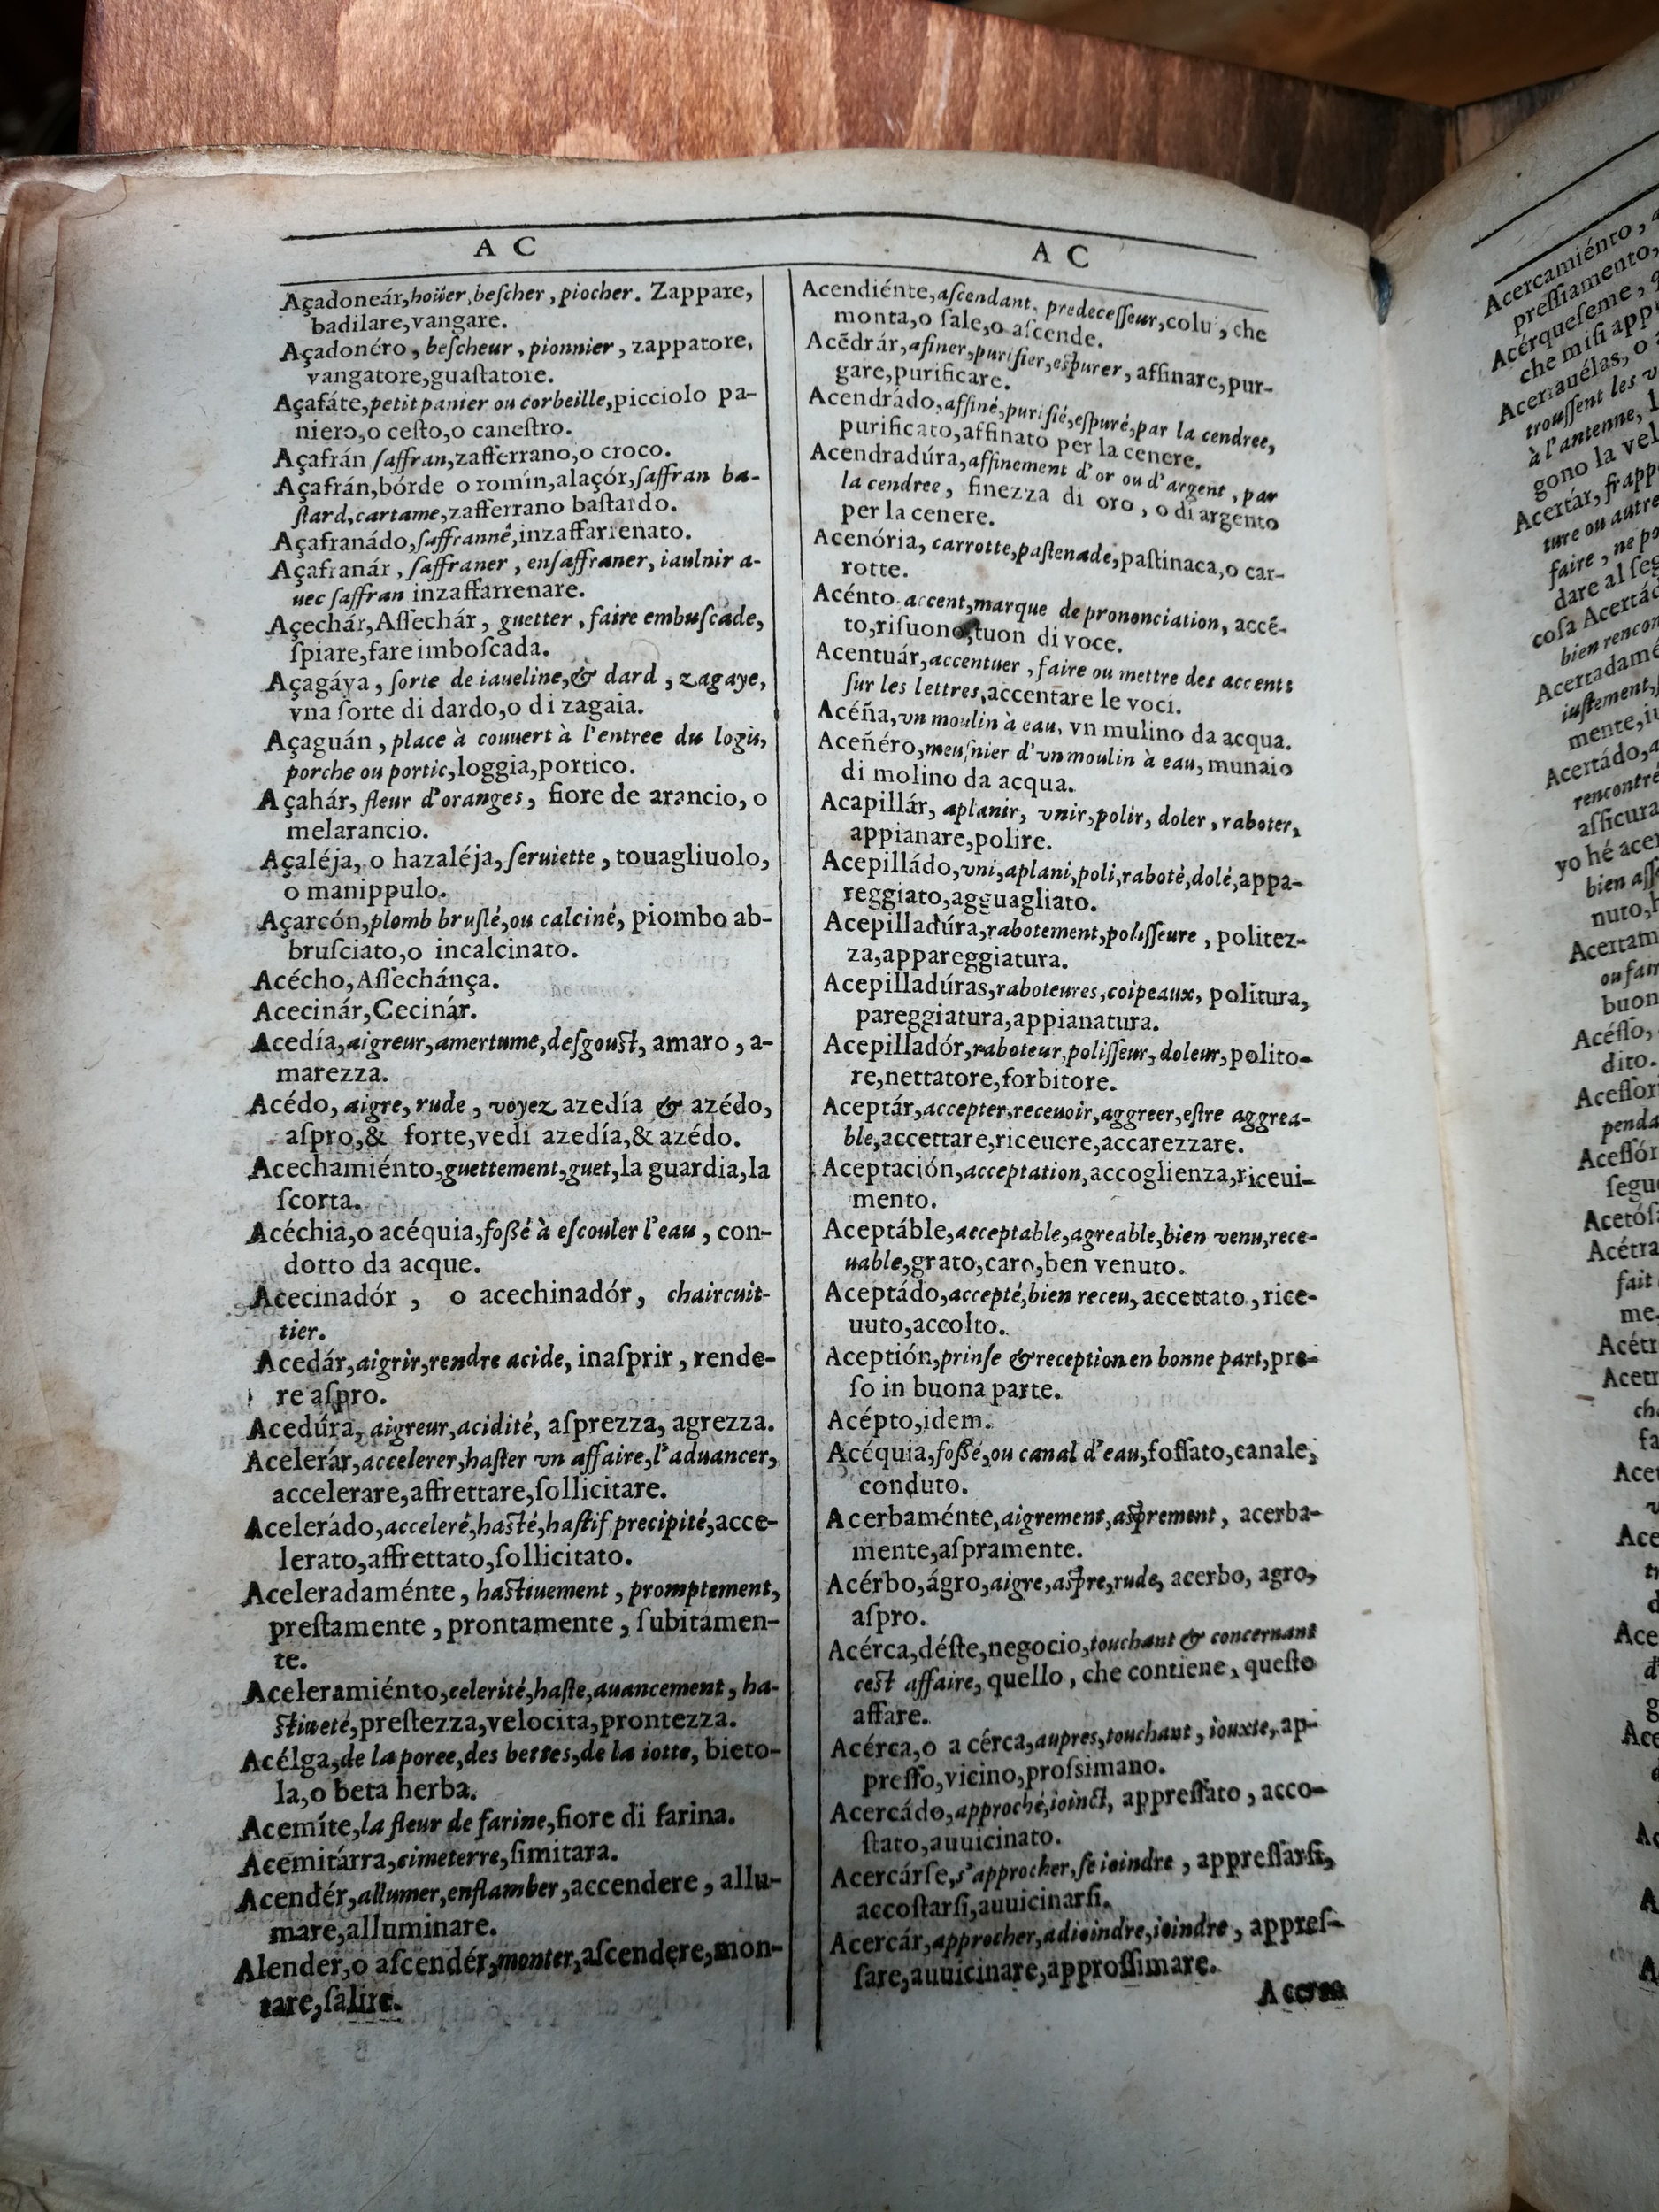 A C
Açadoneár,hoüer,beſcher,piocher. Zappare,
badilare,vangare.
Açadonéro, beſcheur, pionnier, zappatore,
vangatore,guaſtatore.
Açafáte,petit panier ou corbeille,picciolo pa-
niero,o ceſto,o caneſtro.
Açafrán ſaffran,zafferrano,o croco.
Açafrán,bórde o romín,alaçór,ſaffran ba-
ſtard,cartame,zafferrano baſtardo.
Açafranádo,ſaffranné,inzaffarrenato.
Açafranár, ſaffraner, enſaffraner, iaulnir a-
uec ſaffran inzaffarrenare.
Açechár,Aſſechár, guetter, faire embuſcade,
ſpiare,fare imboſcada.
Açagáya, ſorte de iaueline,& dard, zagaye,
vna ſorte di dardo,o di zagaia.
Açaguán, place à couuert à l'entree du logis,
porche ou portic,loggia,portico.
Açahár, fleur d'oranges, fiore de arancio, o
melarancio.
Açaléja, o hazaléja, ſeruiette, touagliuolo,
o manippulo.
Açarcón,plomb bruſlé,ou calciné, piombo ab-
bruſciato,o incalcinato.
Acécho,Aſſechánça.
Acecinár,Cecinár.
Acedía,aigreur,amertume,deſgouſt, amaro, a-
marezza.
Acédo, aigre, rude, voyez azedía & azédo,
aſpro,& forte,vedi azedía,& azédo.
Acechamiénto,guettement,guet,la guardia,la
ſcorta.
Acéchia,o acéquia,foſſé à eſcouler l'eau, con-
dotto da acque.
Acecinadór, o acechinadór, chaircuit-
tier.
Acedár,aigrir,rendre acide, inaſprir, rende-
re aſpro.
Acedúra, aigreur,acidité, aſprezza, agrezza.
Acelerár,accelerer,haſter vn affaire,l'aduancer,
accelerare,affrettare,ſollicitare.
Acelerádo,acceleré,haſté,haſtif precipité,acce-
lerato,affrettato,ſollicitato.
Aceleradaménte, haſtiuement, promptement,
preſtamente, prontamente, ſubitamen-
te.
Aceleramiénto,celerité,haſte,auancement, ha-
ſtiueté,preſtezza,velocita,prontezza.
Acélga,de la poree,des bettes,de la iotte, bieto-
la,o beta herba.
Acemíte,la fleur de farine,fiore di farina.
Acemitárra,cimeterre,ſimitara.
Acendér,allumer,enflamber,accendere, allu-
mare,alluminare.
Alender,o aſcendér,monter,aſcendere,mon-
tare,ſalire.
A C
Acendiénte,aſcendant, predeceſſeur,colu', che
monta,o ſale,o aſcende.
Acẽdrár,afiner,purifier,eſpurer, affinare,pur-
gare,purificare.
Acendrádo,affiné,purifié,eſpuré,par la cendree,
purificato,affinato per la cenere.
Acendradúra,affinement d'or ou d'argent, par
la cendree, finezza di oro, o di argento
per la cenere.
Acenória, carrotte,paſtenade,paſtinaca,o car-
rotte.
Acénto accent,marque de prononciation, accẽ-
to,riſuono,tuon di voce.
Acentuár,accentuer, faire ou mettre des accents
ſur les lettres,accentare le voci.
Acéña,vn moulin à eau, vn mulino da acqua.
Aceñéro,meuſnier d'vn moulin à eau, munaio
di molino da acqua.
Acapillár, aplanir, vnir,polir, doler, raboter,
appianare,polire.
Acepilládo,vni,aplani,poli,raboté,dolé,appa-
reggiato,agguagliato.
Acepilladúra,rabotement,poliſſeure, politez-
za,appareggiatura.
Acepilladúras,raboteures,coipeaux, politura,
pareggiatura,appianatura.
Acepilladór,raboteur,poliſſeur, doleur,polito-
re,nettatore,forbitore.
Aceptár,accepter,receuoir,aggreer,eſtre aggrea-
ble,accettare,riceuere,accarezzare.
Aceptación,acceptation,accoglienza,riceui-
mento.
Aceptáble,acceptable,agreable,bien venu,rece-
uable,grato,caro,ben venuto.
Aceptádo,accepté,bien receu, accettato, rice-
uuto,accolto.
Aceptión,prinſe & reception en bonne part,pre-
ſo in buona parte.
Acépto,idem.
Acéquia,foſſé,ou canal d'eau,foſſato,canale,
conduto.
Acerbaménte,aigrement,aſprement, acerba-
mente,aſpramente.
Acérbo,ágro,aigre,aſpre,rude, acerbo, agro,
aſpro.
Acérca,déſte,negocio,touchant & concernant
ceſt affaire, quello, che contiene, queſto
affare.
Acérca,o a cérca,aupres,touchant, iouxte, ap-
preſſo,vicino,proſsimano.
Acercádo,approché,ioinct, appreſſato, acco-
ſtato,auuicinato.
Acercárſe,s'approcher,ſe ioindre, appreſſarſi,
accoſtarſi,auuicinarſi.
Acercár,approcher,adioindre,ioindre, appreſ-
ſare,auuicinare,approſſimare.
Acerca
Acercamiénto,
preſſiamento,
Acérqueſeme,
che miſi app
troußent les v
à l'antenne,
gono la vel
Acertár, frapp
ture ou autre
faire, ne po
dare al ſeg
coſa Acertác
bien rencon
Acertadamé
iuſtement,
mente,iu
Acertádo,a
rencontré
aſſicura
yo hé acer
bien aſſ
nuto,h
Acertam
ou fair
buon
Acéſſo,
dito.
Aceſſori
penda
Aceſſór
ſegu
Acetóſ
Acétra
fait
me,
Acétr
Acetr
ch
fa